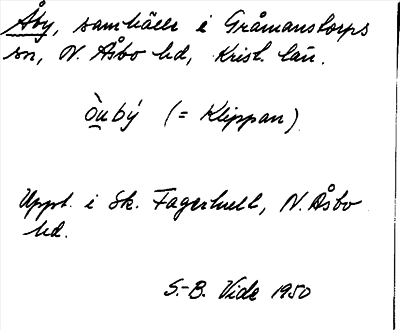 Åby, samhälle i Gråmanstorps
sn, N. Åsbo hd, Krist. län.
òu̲bý (= Klippan)
Uppt. i Sk. Fagerhult, N. Åsbo
hd.
S.-B. Vide 1950